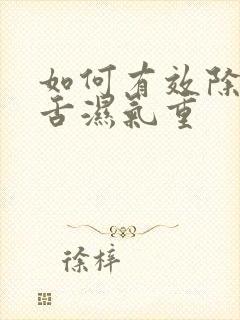 如何有效除
舌濕氣重
徐梓